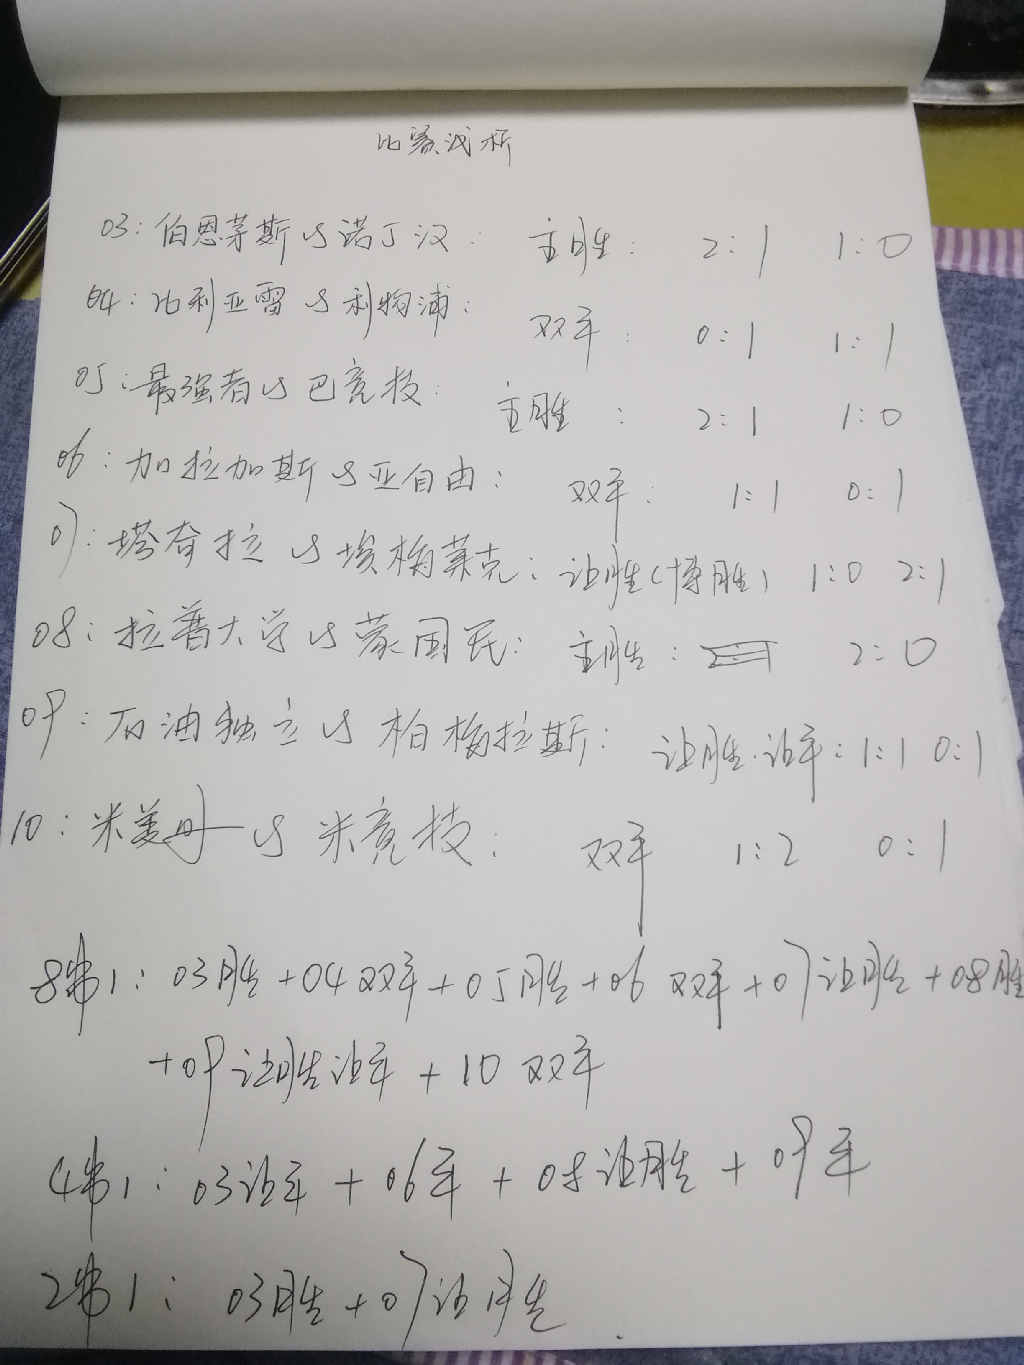 比赛浅析
03：伯恩茅斯VS诺丁汉： 主胜： 2：1 1：0
04：比利亚雷VS利物浦： 双平： 0：1 1：1
05：最强者VS巴竞技： 主胜： 2：1 1：0
06：加拉加斯VS亚自由： 双平： 1：1 0：1
07：塔奇拉VS埃梅莱克： 让胜（博胜） 1：0 2：1
08：拉普大学VS蒙国民： 主胜： 2：0
09：石油独立VS柏梅拉斯： 让胜.让平：1：1 0：1
10：米美冊VS米竞技： 双平 1：2 0：1
8串1：03胜+04双平+05胜+06双平+07让胜+08胜
+09让胜让平+10双平
4串1：03让平+06平+08让胜+09平
2串1：03胜+07让胜.